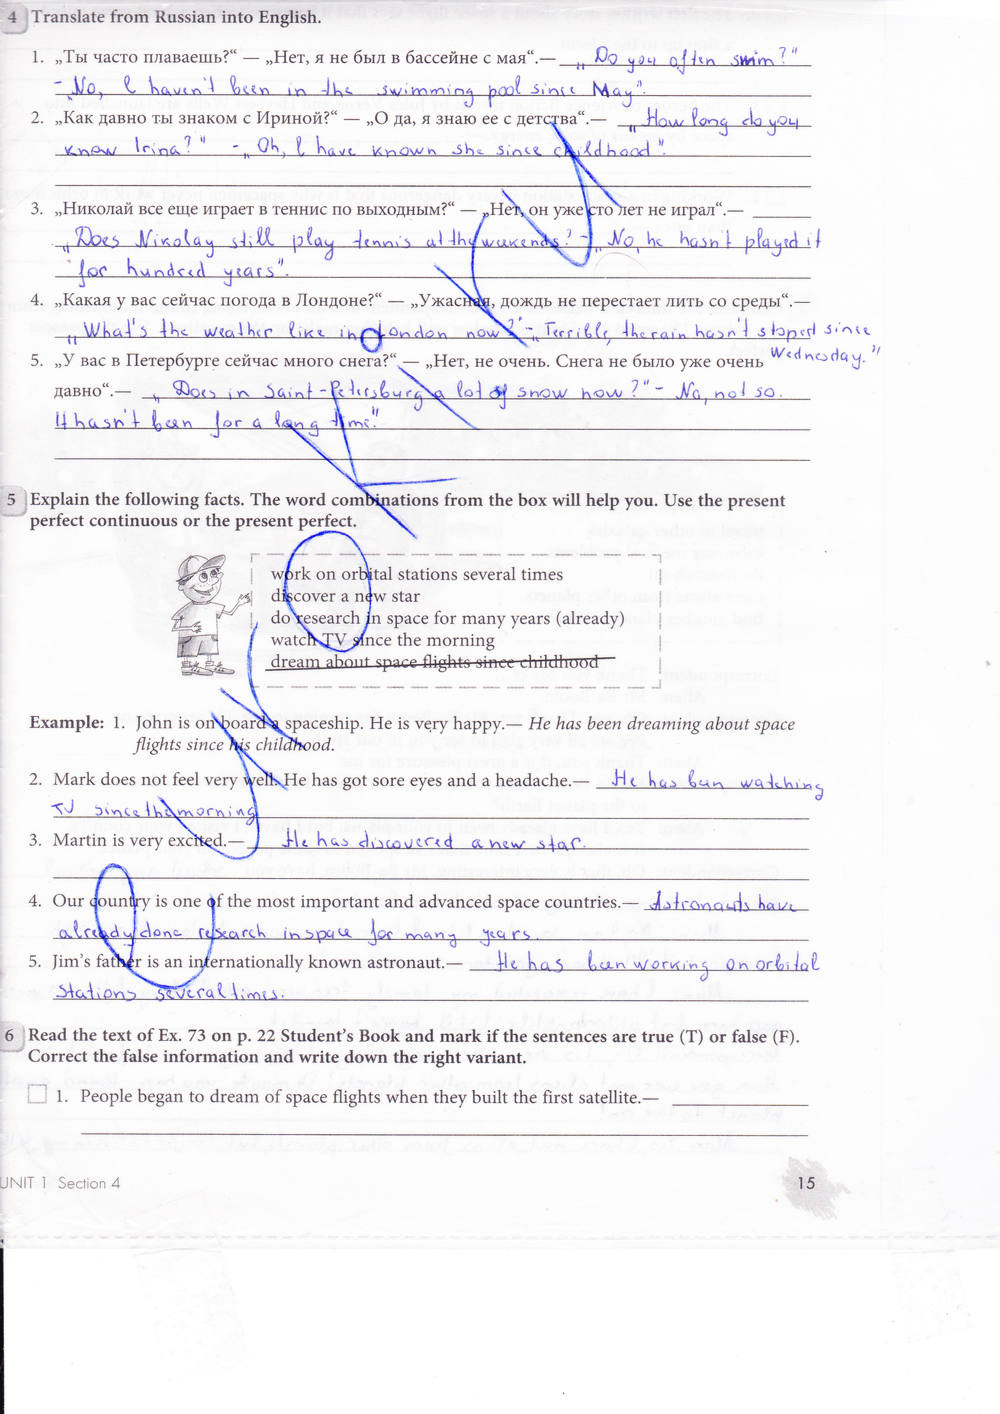 4 Translate from Russian into English.
1. „Ты часто плаваешь?“ — „Нет, я не был в бассейне с мая“.— „Do you often swim?"
- „No, I haven't been in the swimming pool since May".
2. „Как давно ты знаком с Ириной?“ — „О да, я знаю ее с детства“.— „How long do you
know Irina?" - „Oh, I have known she since childhood".
3. „Николай все еще играет в теннис по выходным?“ — „Нет, он уже сто лет не играл“.—
„Does Nikolay still play tennis at the weekends? - „No, he hasn't played it
for hundred years".
4. „Какая у вас сейчас погода в Лондоне?“ — „Ужасная, дождь не перестает лить со среды“.—
„What's the weather like in London now?" - „Terrible, the rain hasn't stoped since
Wednesday."
5. „У вас в Петербурге сейчас много снега?“ — „Нет, не очень. Снега не было уже очень
давно“.— „Does in Saint-Petersburg a lot of snow now?" - No, not so.
It hasn't been for a long time."
5 Explain the following facts. The word combinations from the box will help you. Use the present
perfect continuous or the present perfect.
work on orbital stations several times
discover a new star
do research in space for many years (already)
watch TV since the morning
dream about space flights since childhood
Example: 1. John is on board a spaceship. He is very happy.— He has been dreaming about space
flights since his childhood.
2. Mark does not feel very well. He has got sore eyes and a headache.— He has been watching
TV since the morning
3. Martin is very excited.— He has discovered a new star.
4. Our country is one of the most important and advanced space countries.— Astronauts have
already done research in space for many years.
5. Jim's father is an internationally known astronaut.— He has been working on orbital
stations several times.
6 Read the text of Ex. 73 on p. 22 Student's Book and mark if the sentences are true (T) or false (F).
Correct the false information and write down the right variant.
1. People began to dream of space flights when they built the first satellite.—
UNIT 1 Section 4
15